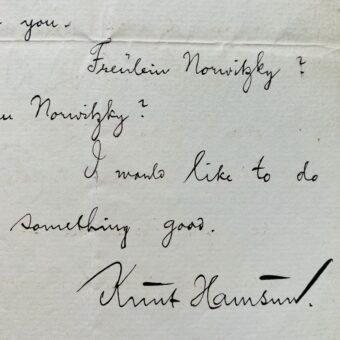 you.
Freülein Norwitzky?
Norwitzky?
I would like to do
something good.
Knut Hamsun.